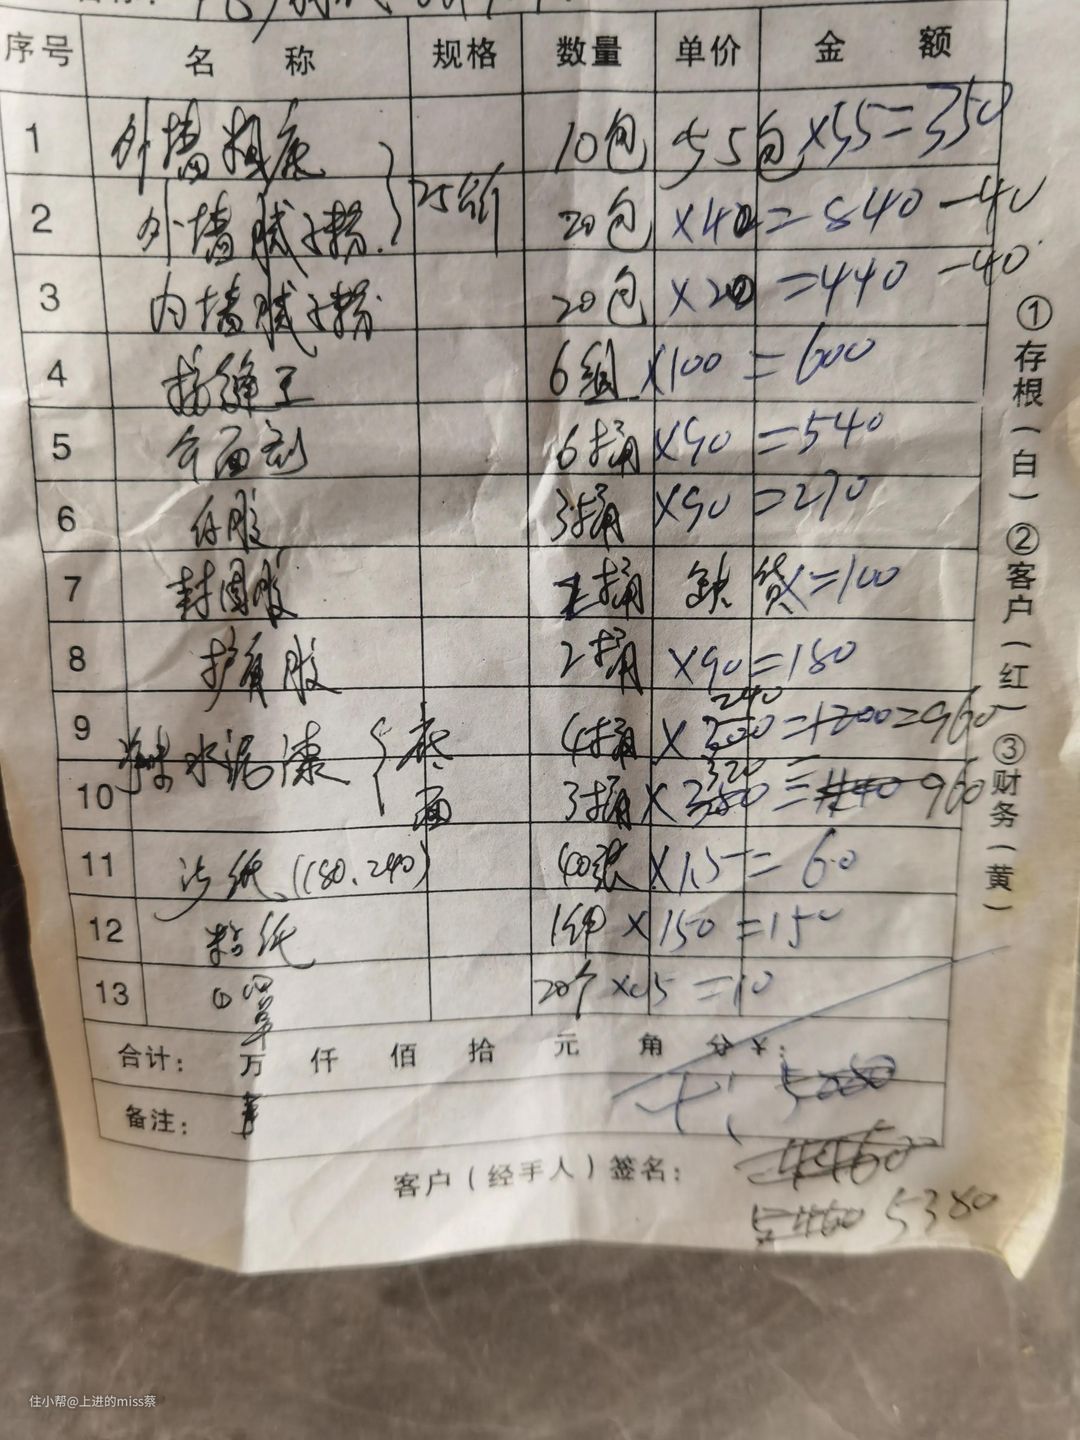 序号 名称 规格 数量 单价 金额
1 外墙粗底 10包 55包×35=350
2 外墙腻子粉 25公斤 20包 ×42=840 -40
3 内墙腻子粉 20包 ×22=440 -40
4 接缝王 6组 ×100=600
5 界面剂 6桶 ×90=540
6 3桶 ×90=270
7 封固胶 1桶 缺货 =100
8 2桶 ×90=180
9 水泥漆 底 4桶 × 240 =1200=960
10 面 3桶 × 320 380 = 960
11 沙纸(180.240) 40张 ×1.5=60
12 粘纸 ×150=150
13 口罩 20个 ×0.5=10
合计: 万 仟 佰 拾 元 角 分¥:
备注:
客户(经手人)签名:
4460
5460 5380
①存根(白)②客户(红)③财务(黄)
住小帮@上进的miss蔡